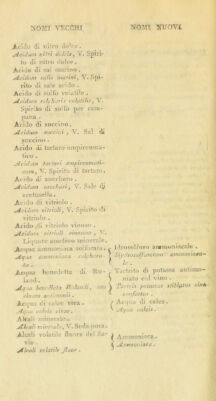 NOMI VECCHI
NOMI NUOVI
Acido di nitro dolce.
Acidum nitri dulcis, V. Spiri-
to di nitro dolce.
Acido di sal marino.
Acidum salis marini, V. Spi-
rito di sale acido.
Acido di solfo volatile.
Acidum sulphuris volatile, V.
Spirito di solfo per cam-
pana.
Acido di succino.
Acidum succini, V. Sal di
succino.
Acido di tartaro empireuma-
tico.
Acidum tartari empireumati-
cum, V. Spirito di tartaro.
Acido di zucchero.
Acidum sacchari, V. Sale di
acetosella.
Acido di vitriolo.
Acidum vitrioli, V. Spirito di
vitriolo.
Acido di vitriolo vinoso.
Acidum vitrioli vinosum, V.
Liquore anodino minerale.
Acqua ammoniaca solforata.
Aqua ammoniaca sulphura-
ta.
Idrosolfuro ammoniacale.
Hydrosulfuretum ammoniaca-
le.
Acqua benedetta di Ru-
land.
Aqua benedicta Rulandi,
Tartrito di potassa antimo-
niato col vino.
Tartris potassae stibiatus vino
confectus.
Acqua di calce viva.
Aqua calcis vivae.
Acqua di calce.
Aqua calcis.
Alcali minerale.
Alkali minerale, V. Seda pura.
Alcali volatile fluore del Sa-
Alkali volatile fluor.
Ammoniaca.
Ammoniaca.